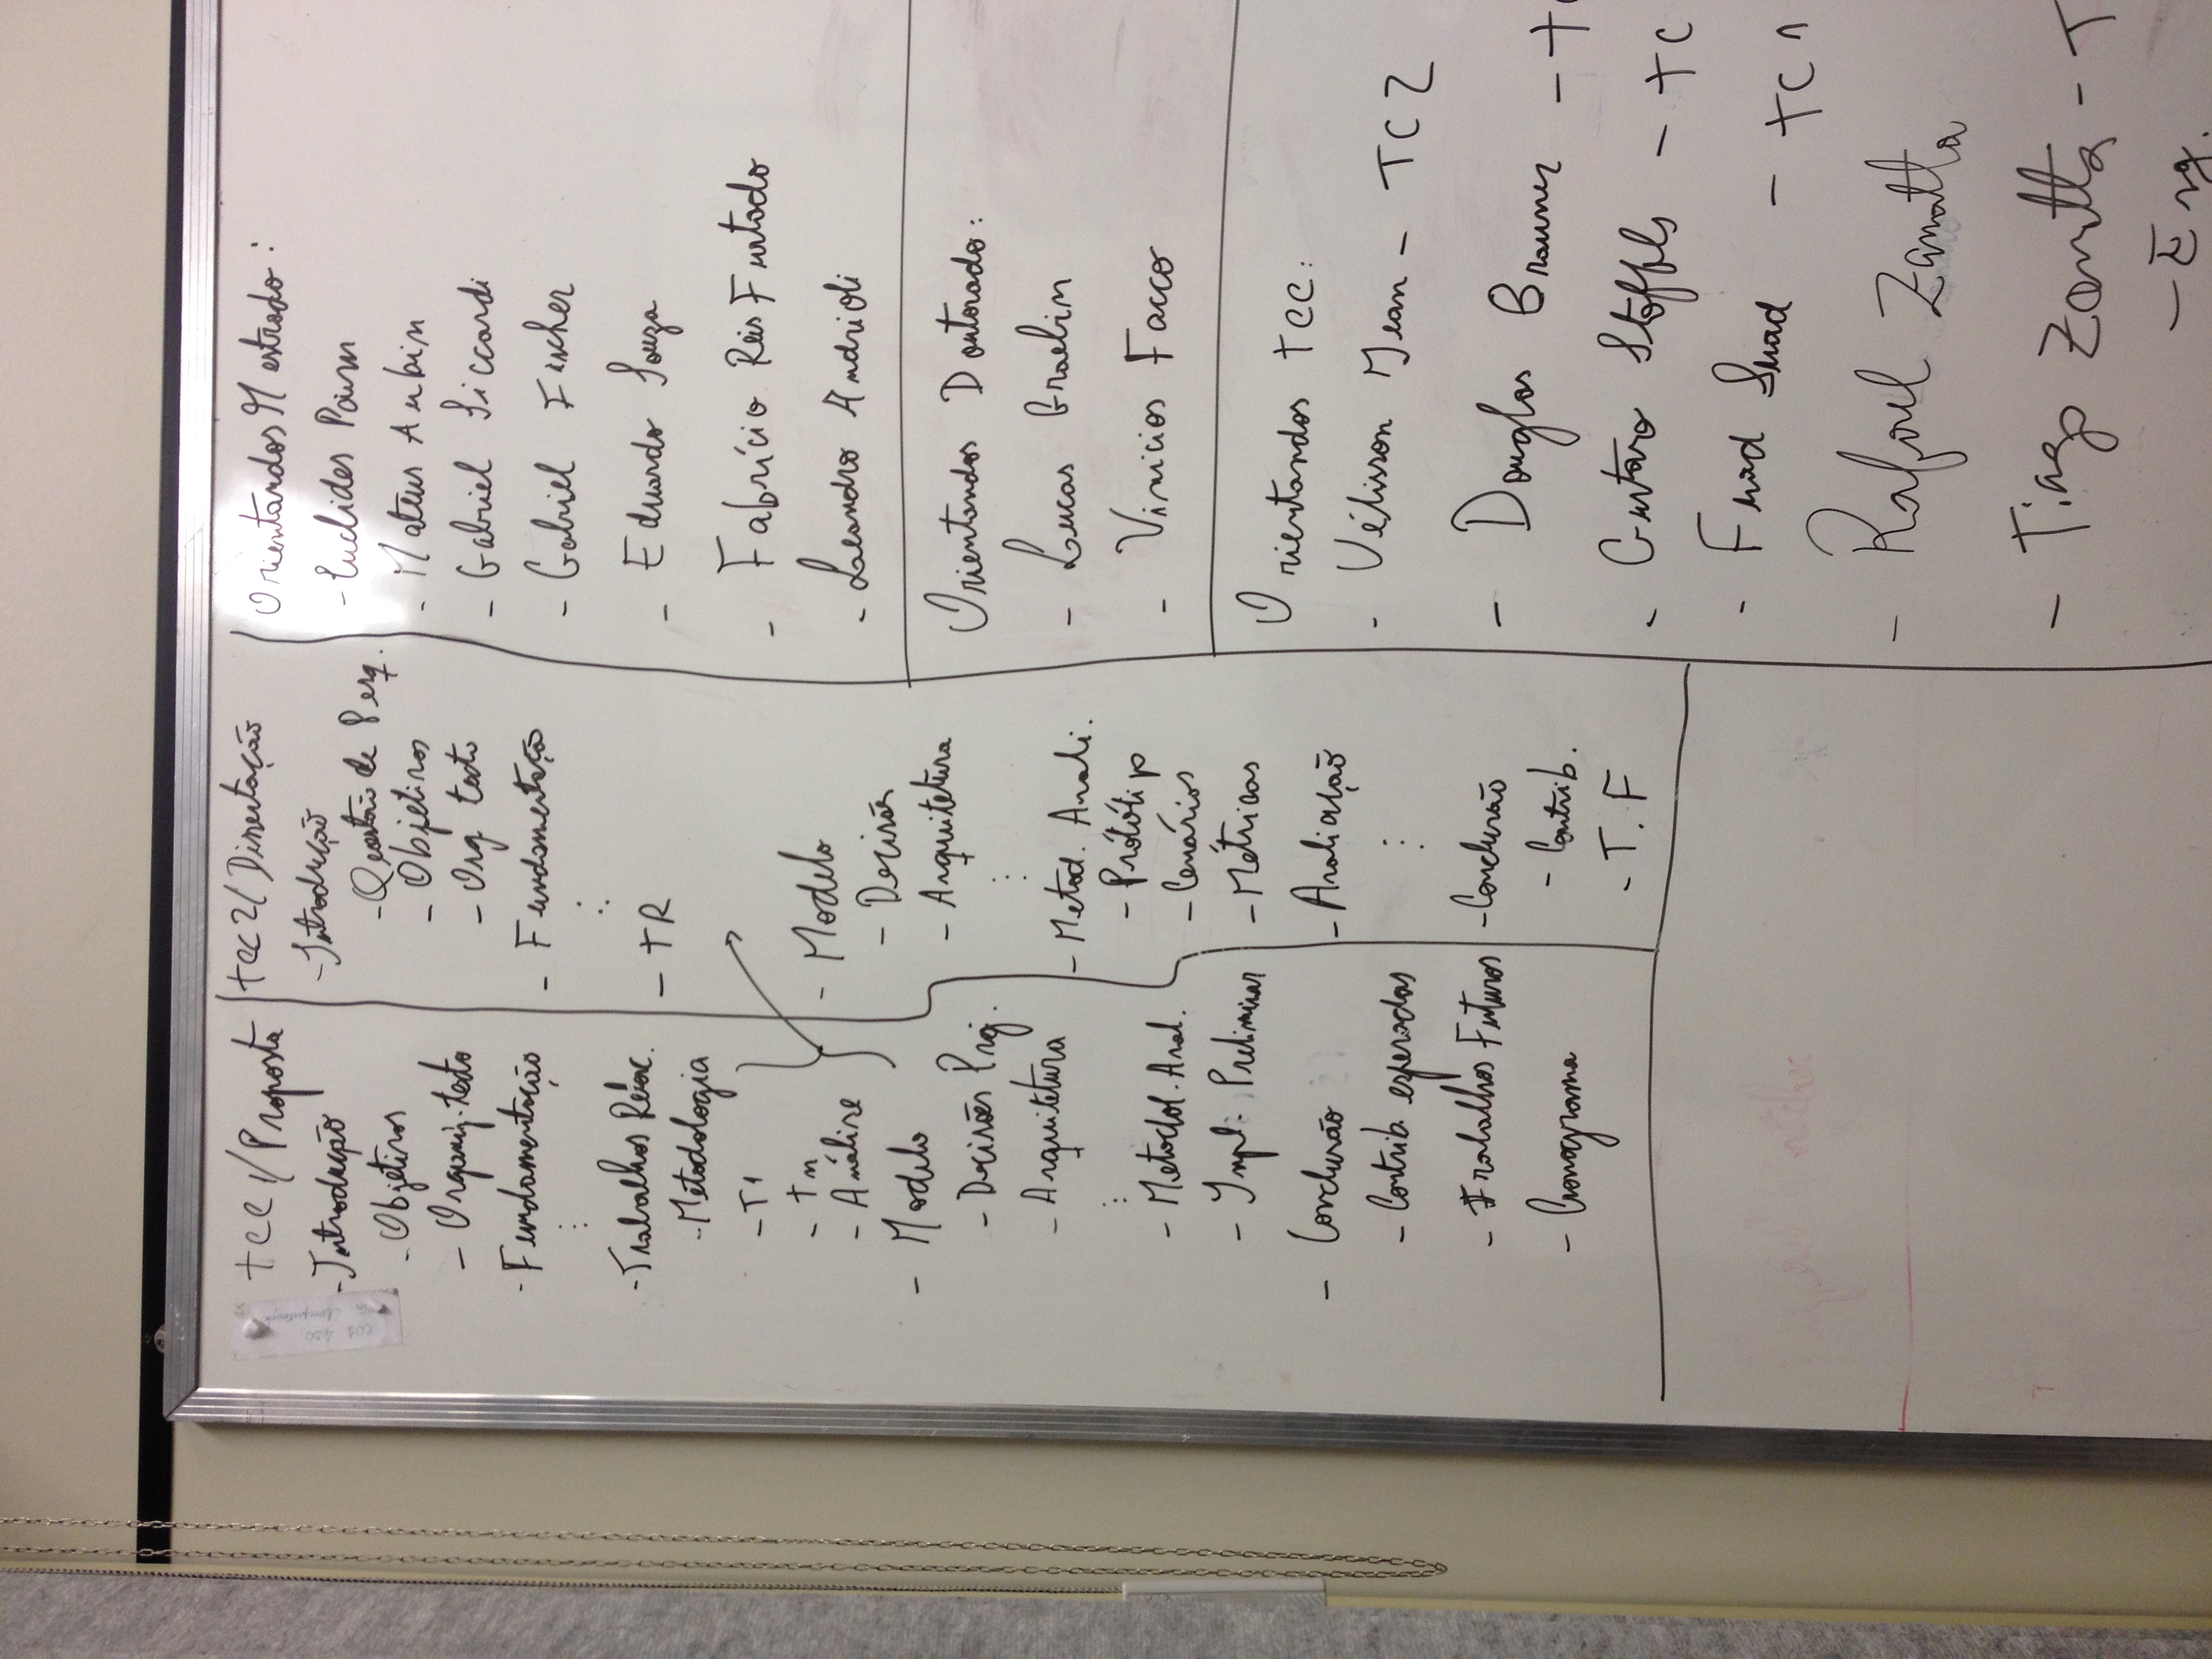 TCC 1/Proposta
- Introdução
- Objetivos
- Organiz. texto
- Fundamentação
⋮
- Trabalhos Relac.
- Metodologia
- T1
- Tn
- Análise
- Modelo
- Decisões Proj.
- Arquitetura
⋮
- Metodol. Aval.
- Impl. Preliminar
- Conclusão
- Contrib. esperadas
- Trabalhos Futuros
- Cronograma
TCC 2/ Dissertação
- Introdução
- Questão de Pesq.
- Objetivos
- Org texto
- Fundamentação
⋮
- TR
- Modelo
- Decisões
- Arquitetura
⋮
- Metod. Avali.
- Protótip
- Cenários
- Métricas
- Avaliação
⋮
- Conclusão
- Contrib.
- T. F
Orientandos Mestrado:
- Euclides
- Mateus Aubin
- Gabriel Siccardi
- Gabriel Fischer
- Eduardo Souza
- Fabrício Reis Furtado
- Leandro Andrioli
Orientandos Doutorado:
- Lucas Graebin
- Vinicios Facco
Orientandos TCC:
- Vélisson Jean - TC2
- Douglas Brauner - TC
- Gustavo Stoffels - TC
- Fuad Suad - TC 1
- Rafael Zanatta
- Tiago Zanatta - T
- Eng.